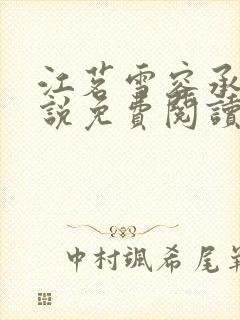 江茗雪容承
說免費閱讀
中村颯希尾羊